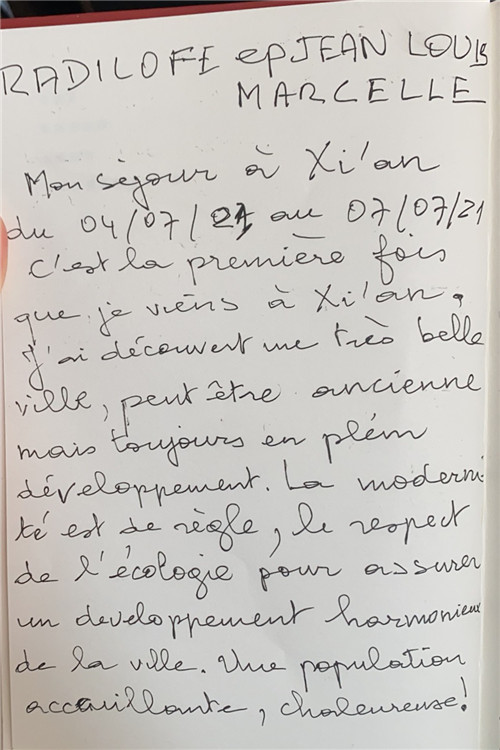 RADILOFE ep JEAN LOUIS
MARCELLE
Mon séjour à Xi'an
du 04/07/21 au 07/07/21
C'est la première fois
que je viens à Xi'an.
J'ai découvert une très belle
ville, peut être ancienne
mais toujours en plém
développement. La moderni-
té est de règle, le respect
de l'écologie pour assurer
un developpement harmonieux
de la ville. Une population
accauillante, chaleureuse!